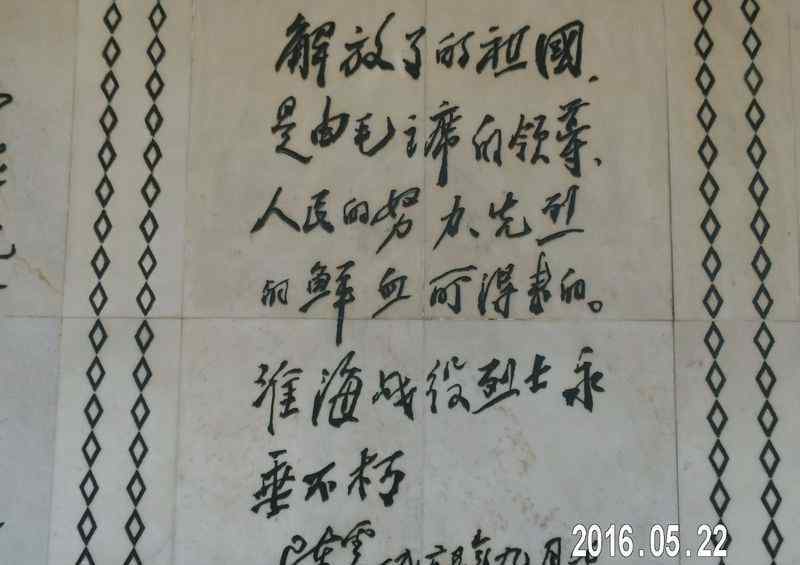 解放了的祖國、
是由毛主席的领導、
人民的努力、先烈
的鲜血所得来的。
淮海战役烈士永
垂不朽
陈雲
2016.05.22